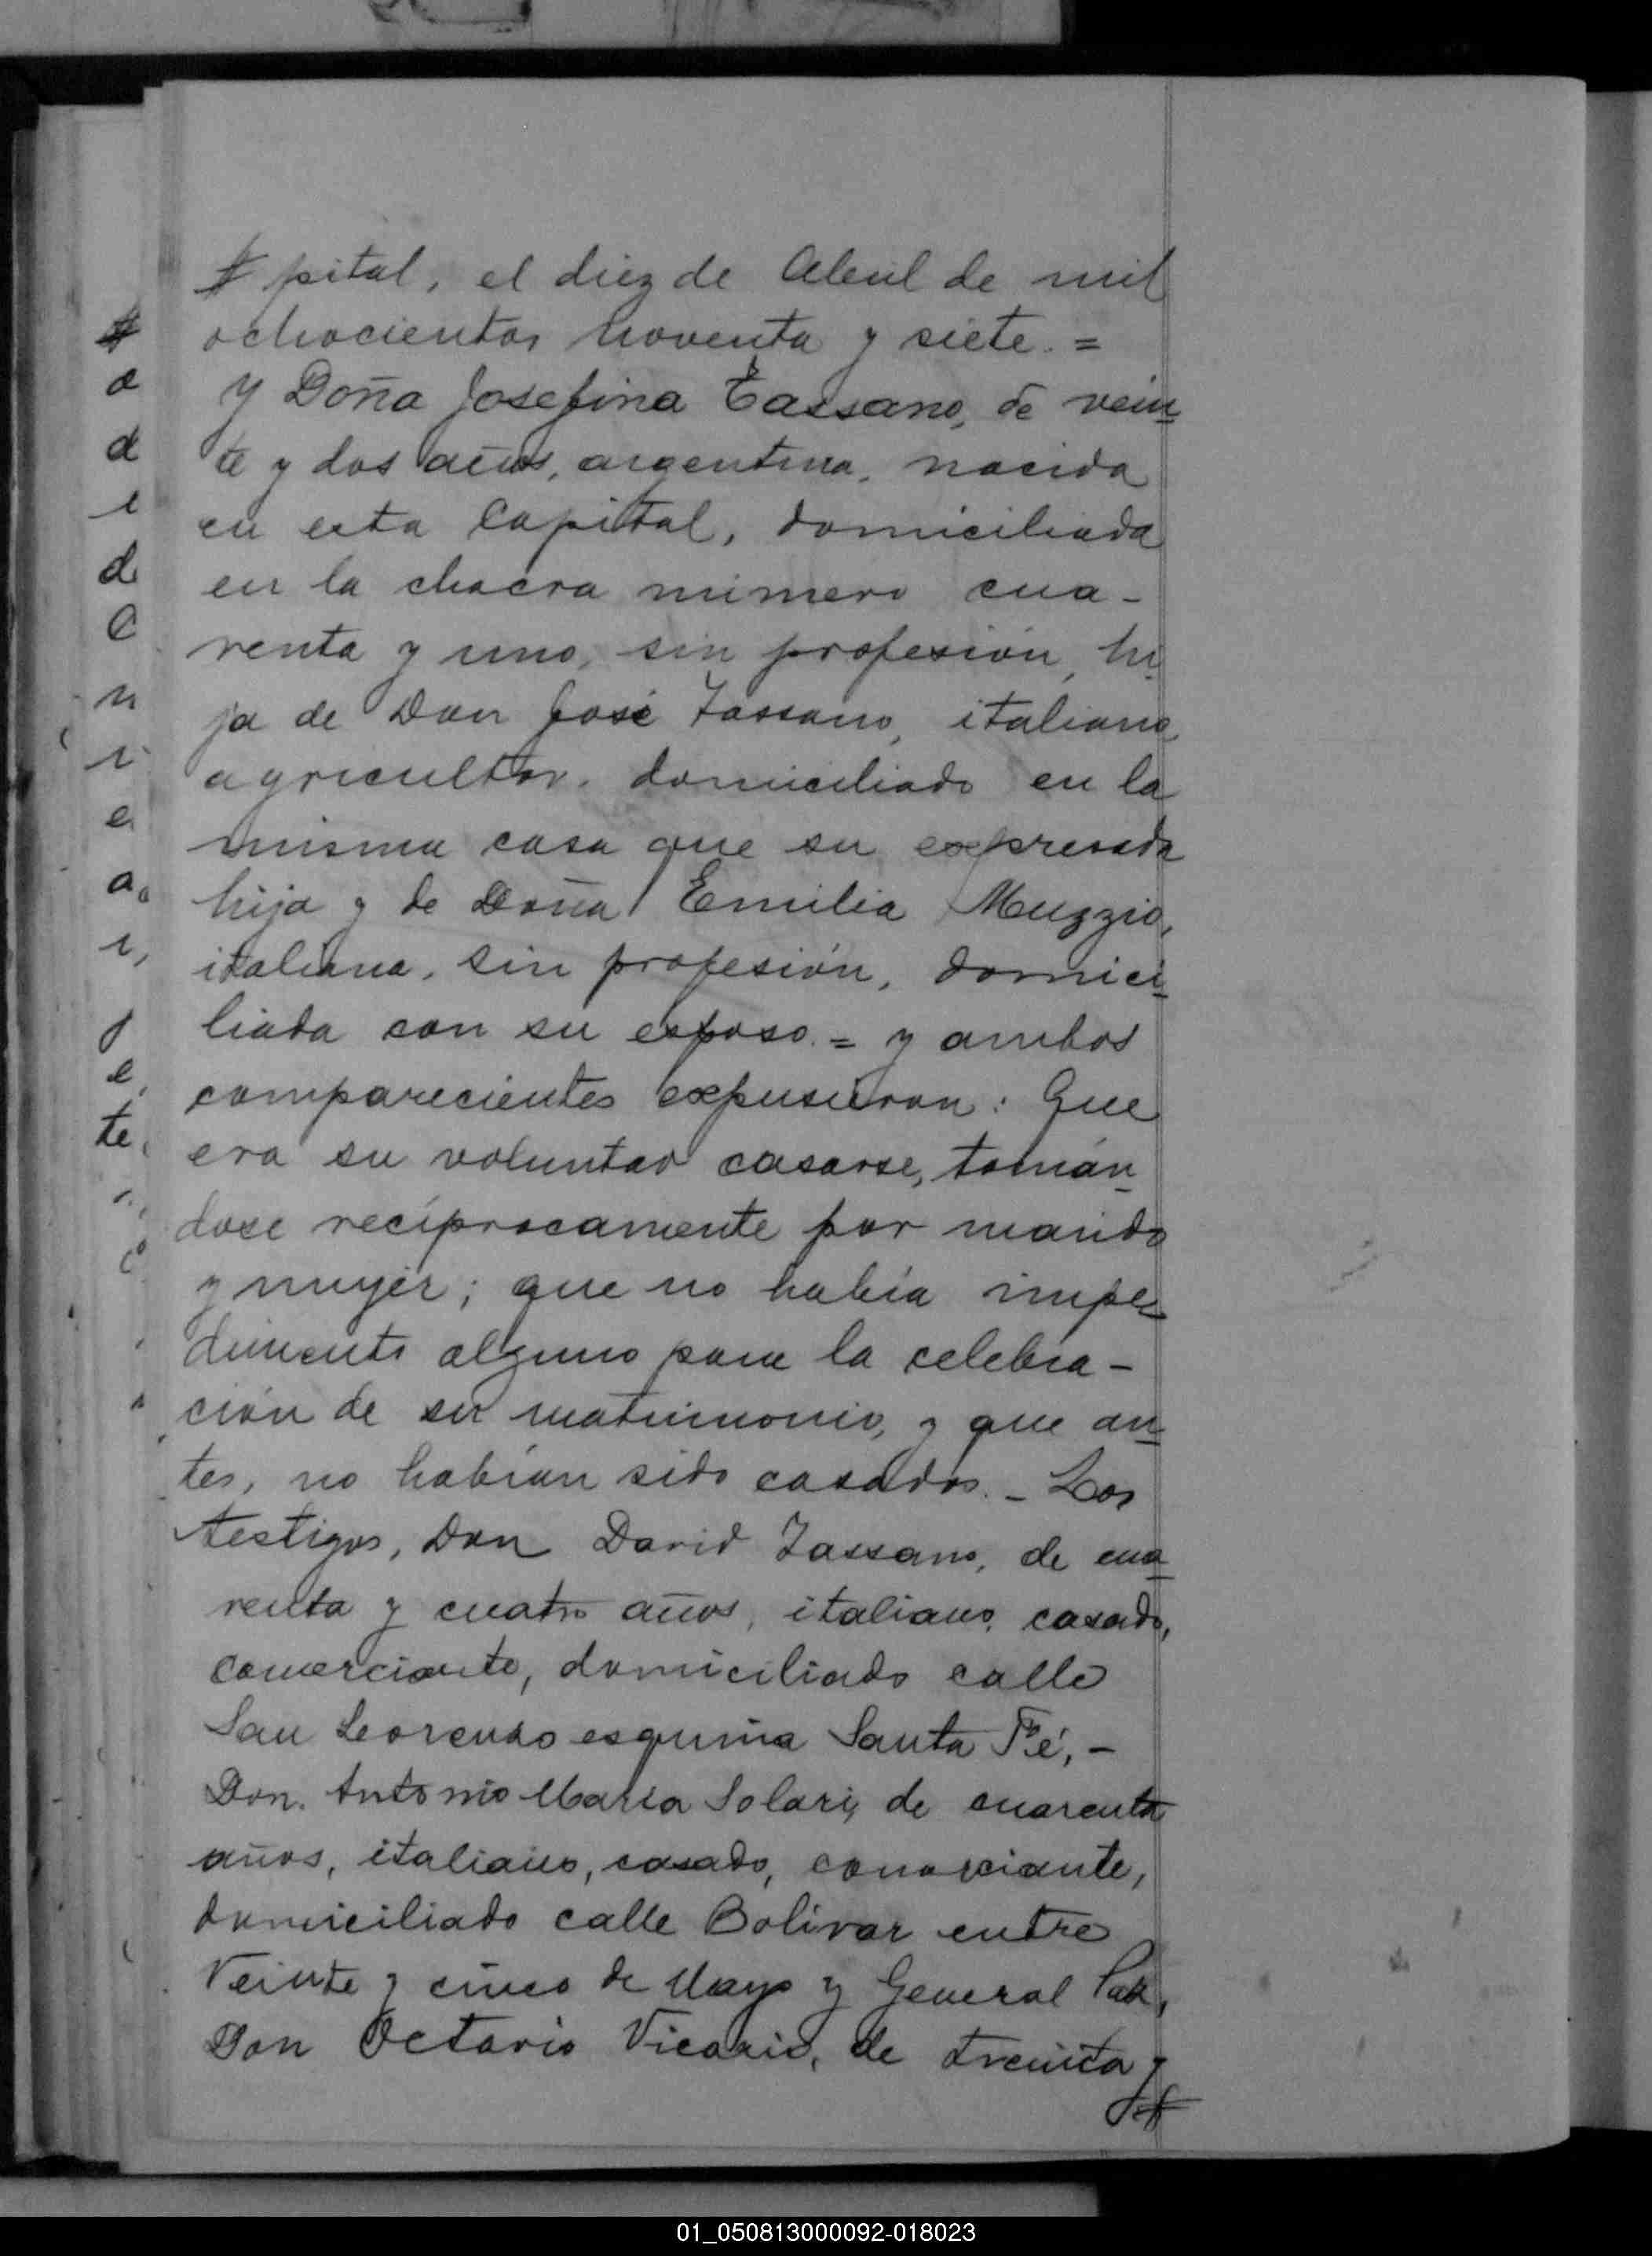 pital, el diez de Abril de mil
ochocientos noventa y siete. =
y Doña Josefina Tassano, de vein-
te y dos años, argentina, nacida
en esta Capital, domiciliada
en la chacra número cua-
renta y uno, sin profesión, hi-
ja de Don José Tassano, italiano,
agricultor, domiciliado en la
misma casa que su expresada
hija y de Doña Emilia Muzzio,
italiana, sin profesión, domici-
liada con su esposo. = y ambos
comparecientes expusieron: Que
era su voluntad casarse, tomán-
dose recíprocamente por marido
y mujer; que no había impe-
dimento alguno para la celebra-
ción de su matrimonio, y que an-
tes, no habían sido casados. - Los
testigos, Don David Tassano, de cua-
renta y cuatro años, italiano, casado,
comerciante, domiciliado calle
San Lorenzo esquina Santa Fé, -
Don Antonio María Solari, de cuarenta
años, italiano, casado, comerciante,
domiciliado calle Bolívar entre
Veinte y cinco de Mayo y General Paz,
Don Octavio Vicario, de treinta y
01_050813000092-018023